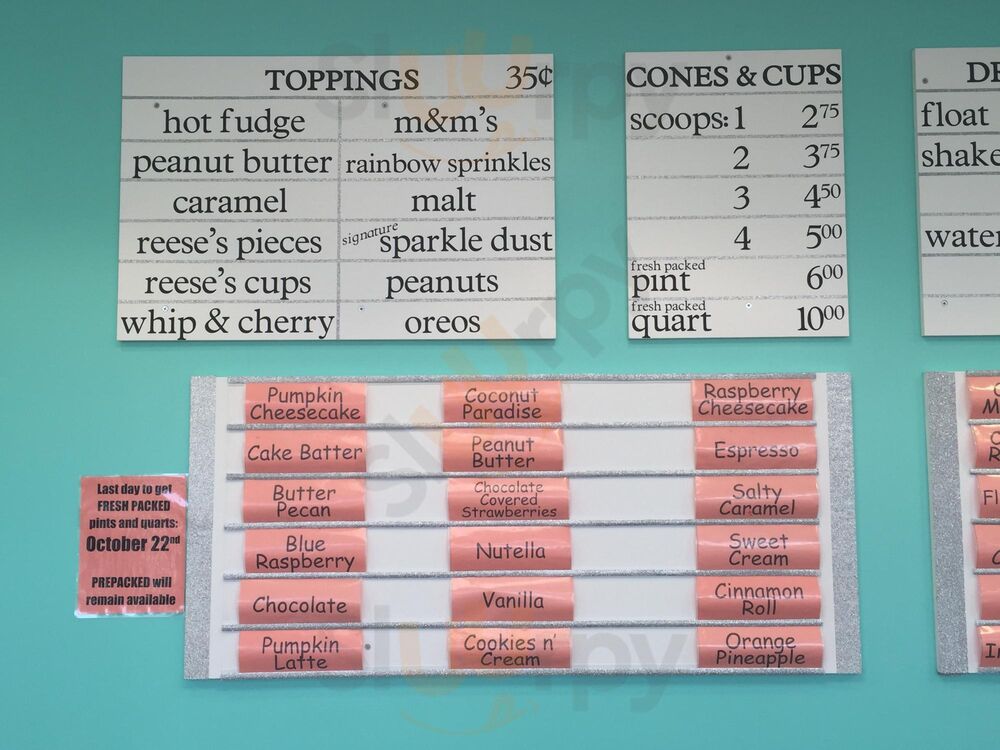 TOPPINGS 35¢
hot fudge m&m's
peanut butter rainbow sprinkles
caramel malt
reese's pieces signature sparkle dust
reese's cups peanuts
whip & cherry oreos
CONES & CUPS
scoops: 1 2 75
2 3 75
3 4 50
4 5 00
fresh packed
pint 6 00
fresh packed
quart 10 00
float
shake
water
Pumpkin
Cheesecake
Coconut
Paradise
Raspberry
Cheesecake
Cake Batter
Peanut
Butter
Espresso
Butter
Pecan
Chocolate
Covered
Strawberries
Salty
Caramel
Blue
Raspberry
Nutella
Sweet
Cream
Chocolate
Vanilla
Cinnamon
Roll
Pumpkin
Latte
Cookies n'
Cream
Orange
Pineapple
Last day to get
FRESH PACKED
pints and quarts:
October 22nd
PREPACKED will
remain available
slurpy